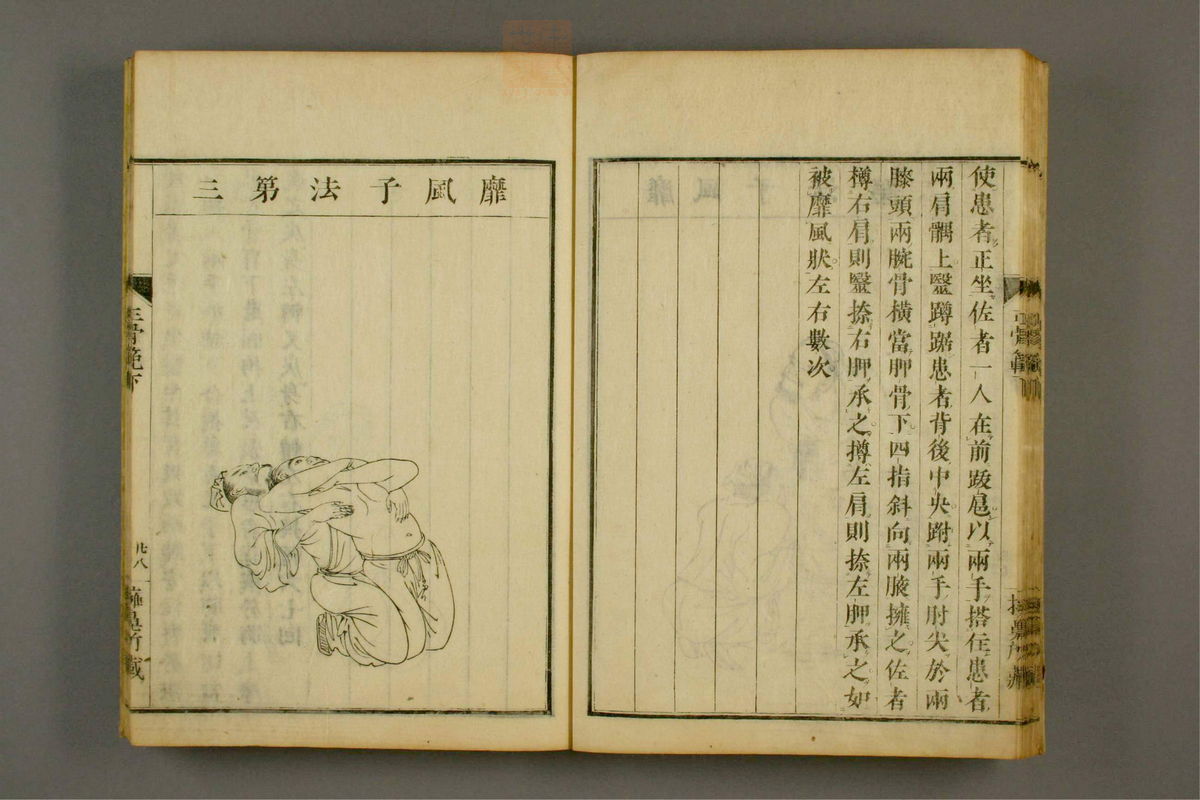 使患者正坐佐者一人在前跋扈以兩手搭住患者
兩肩髃上毉蹲踞患者背後中央跗兩手肘尖於兩
膝頭兩腕骨橫當胛骨下四指斜向兩腋擁之佐者
樽右肩則毉捺右胛承之撙左肩則捺左胛承之如
被靡風狀左右數次
靡風子法第三
正骨範下
廿八